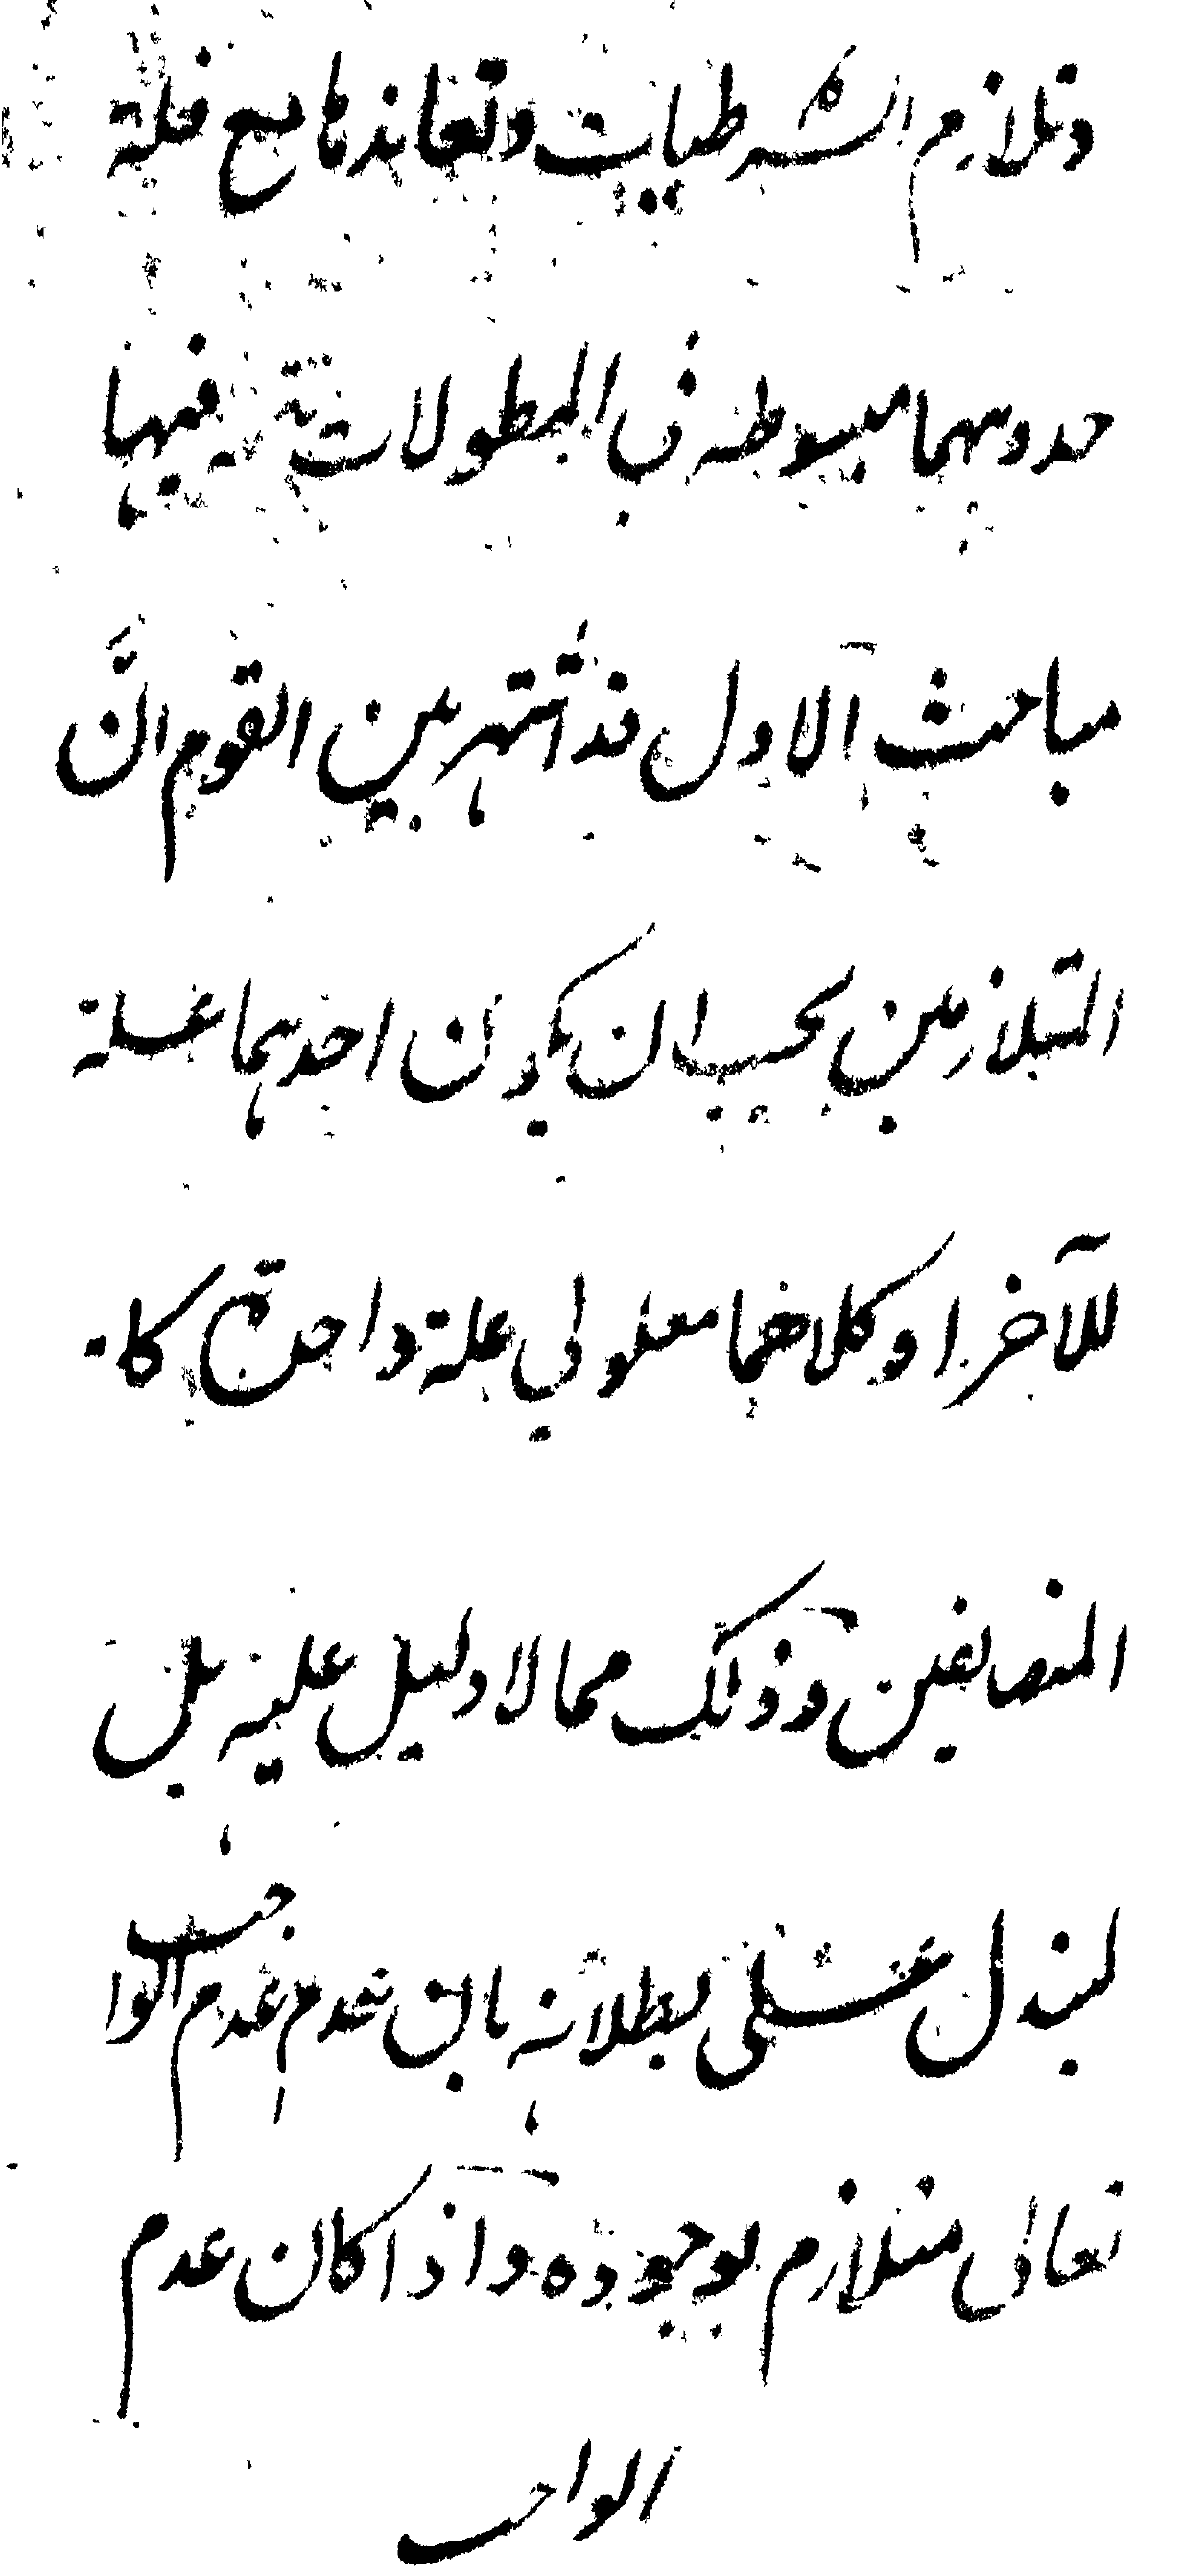 وتلازم الشرطيات وتعاندها مع قلة
جدوىهما مبسوطة في المطولات ثم فيها
مباحث الاول قد اشتهر بين القوم انَّ
المتلازمين يجب ان يكون احديهما علة
للآخر او كلاهما معلولي علة واحدة كا
المتضايفين وذلك مما لا دليل عليه بل
ليتدل على بطلانه بان عدم عدم الواجب
تعالى متلازم لوجوده واذا كان عدم
الواجب